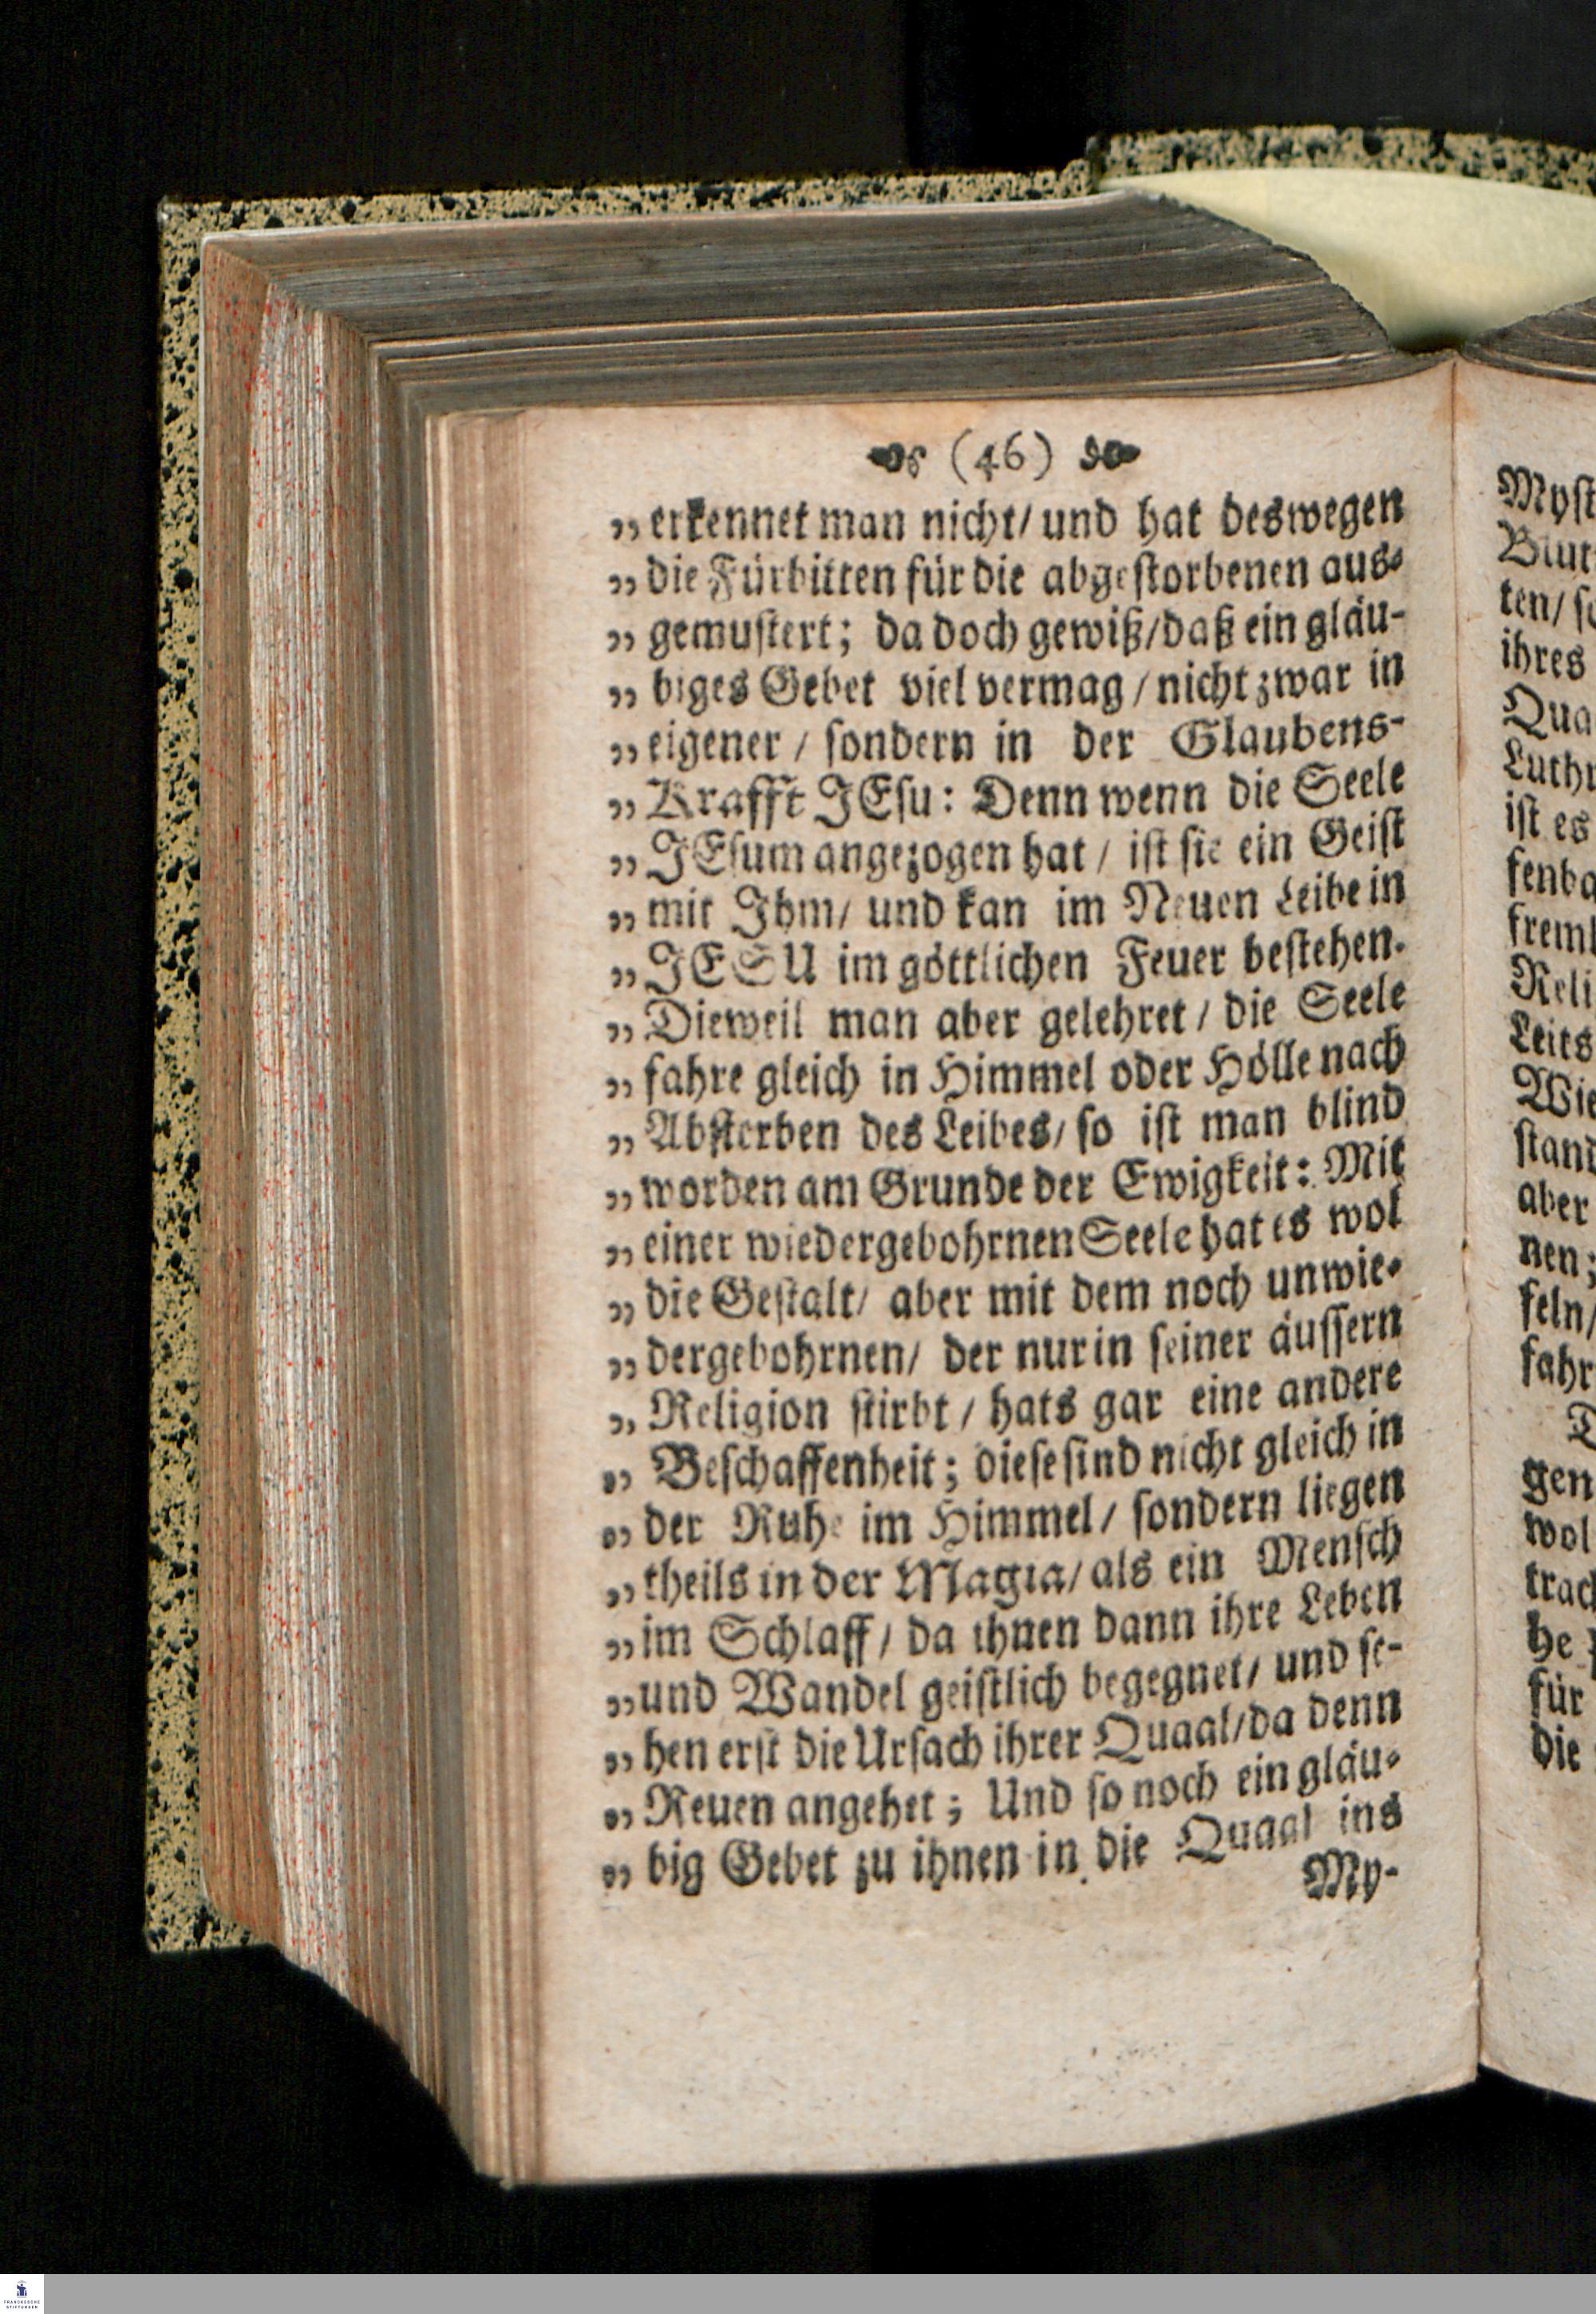 (46)
„ erkennet man nicht/ und hat deswegen
„ die Fürbitten für die abgestorbenen aus-
„ gemustert; da doch gewiß/daß ein gläu-
„ biges Gebet viel vermag / nicht zwar in
„ eigener / sondern in der Glaubens-
„ Krafft JEsu: Denn wenn die Seele
„ JEsum angezogen hat / ist sie ein Geist
„ mit Ihm/ und kan im Neuen Leibe in
„ JESU im göttlichen Feuer bestehen.
„ Dieweil man aber gelehret / die Seele
„ fahre gleich in Himmel oder Hölle nach
„ Absterben des Leibes/ so ist man blind
„ worden am Grunde der Ewigkeit: Mit
„ einer wiedergebohrnen Seele hat es wol
„ die Gestalt/ aber mit dem noch unwie-
„ dergebohrnen/ der nur in seiner äussern
„ Religion stirbt / hats gar eine andere
„ Beschaffenheit; diese sind nicht gleich in
„ der Ruhe im Himmel/ sondern liegen
„ theils in der Magia/ als ein Mensch
„ im Schlaff/ da ihnen dann ihre Leben
„ und Wandel geistlich begegnet/ und se-
„ hen erst die Ursach ihrer Quaal/da denn
„ Reuen angehet; Und so noch ein gläu-
„ big Gebet zu ihnen in die Quaal ins
My-
Myst
Blut
ten/ so
ihres
Qua
Luthr
ist es
fenba
freml
Reli
Leits
Wie
stand
aber
nen;
feln/
fahr
D
gen
wol
trach
he
für
die
FRANCKESCHE
STIFTUNGEN